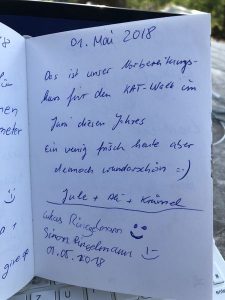 01. Mai 2018
Das ist unser Vorbereitungs-
kurs für den KAT-Walk im
Juni diesen Jahres
Ein wenig frisch heute aber
dennoch wunderschön :-)
Jule + Ali + Krümel
Lukas Ringelmann
Simon Ringelmann
01.05.2018